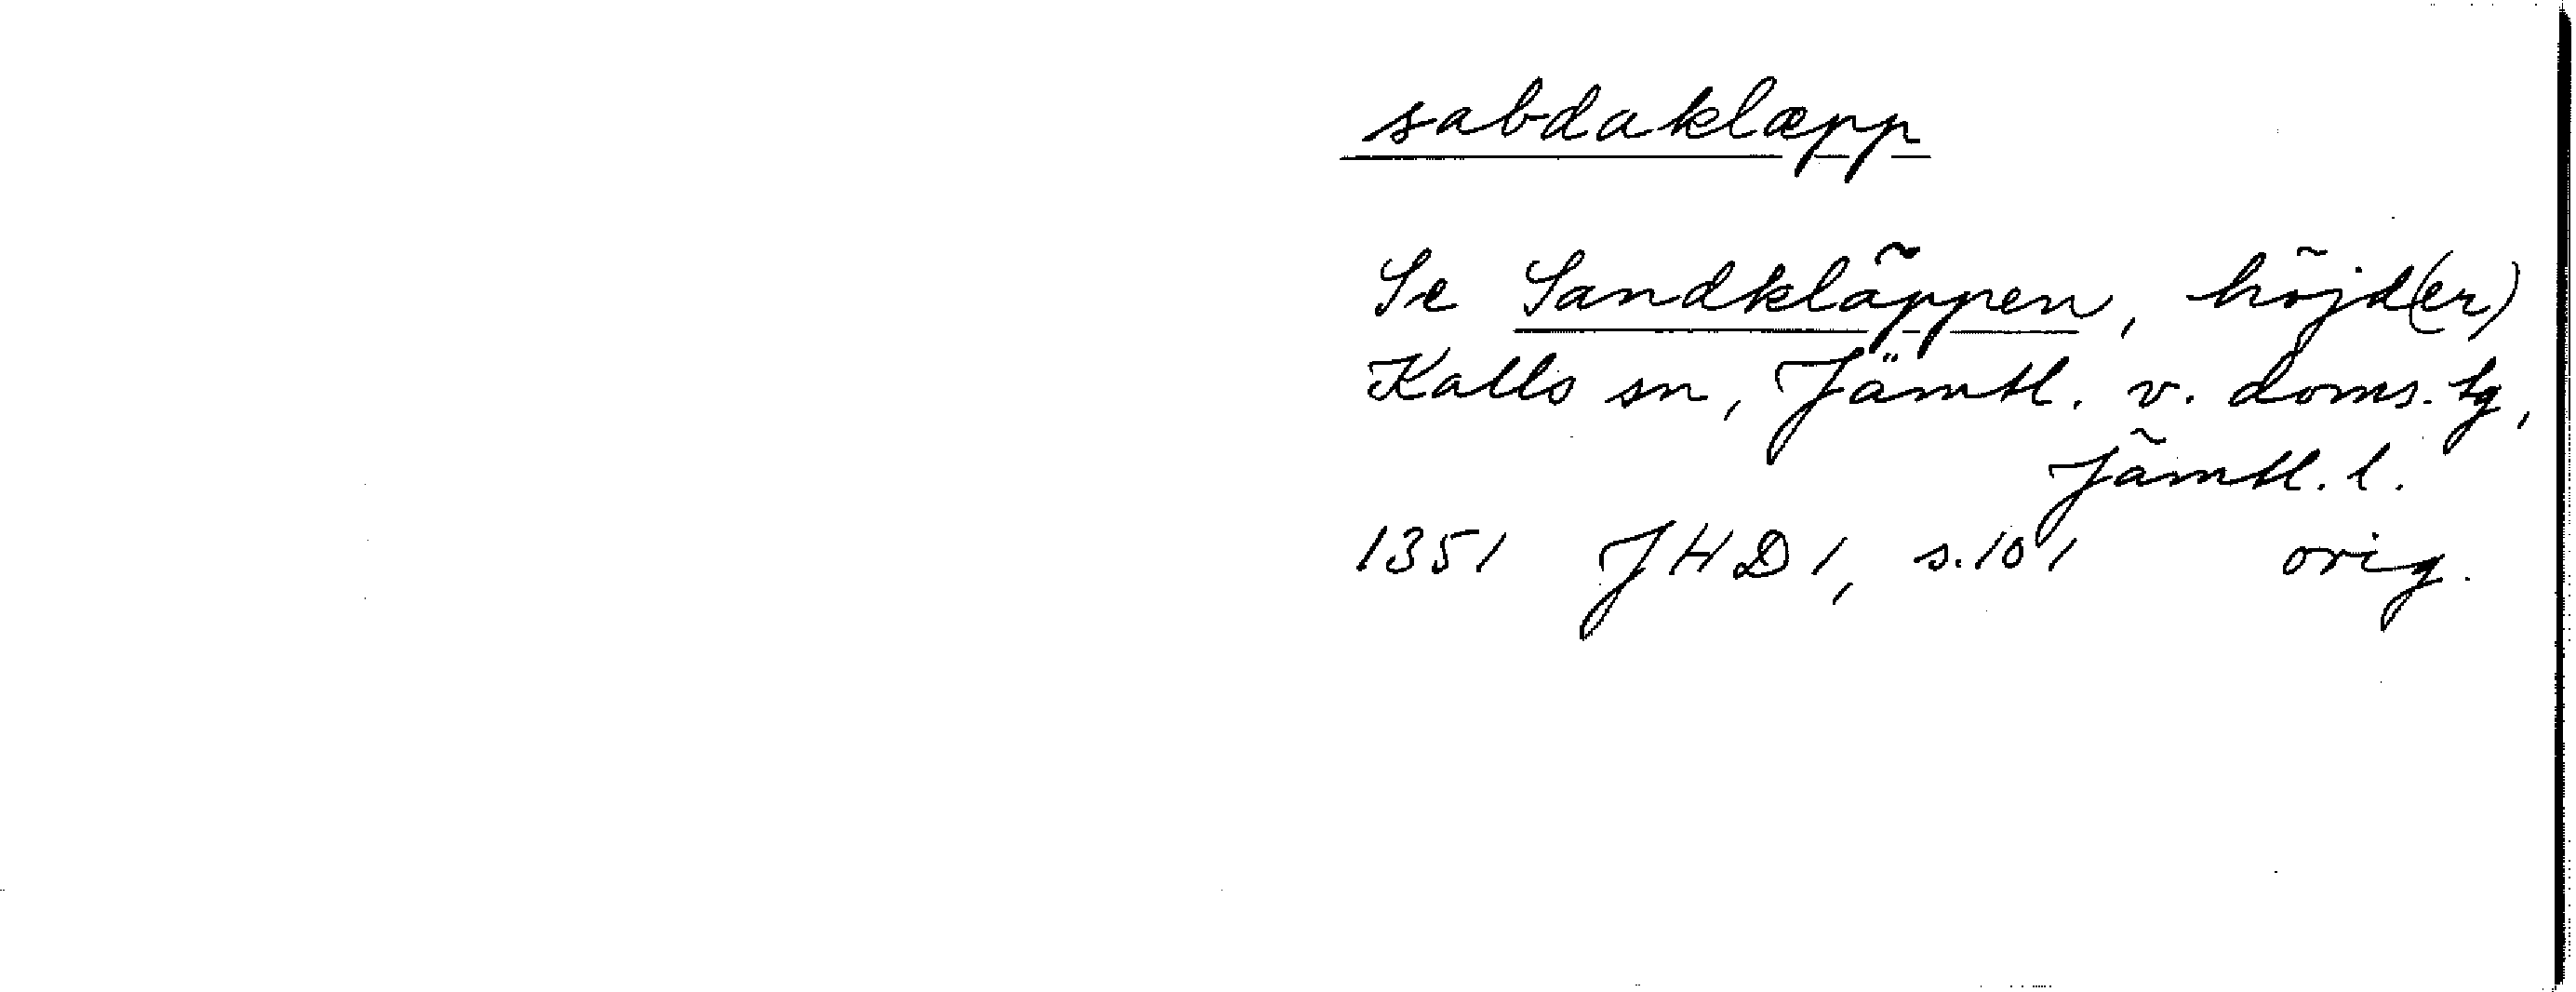 sabdaklæpp
Se Sandkläppen, höjd(er)
Kalls sn, Jämtl. v. doms. tg,
Jämtl. l.
1351 JHD 1, s. 101 orig.